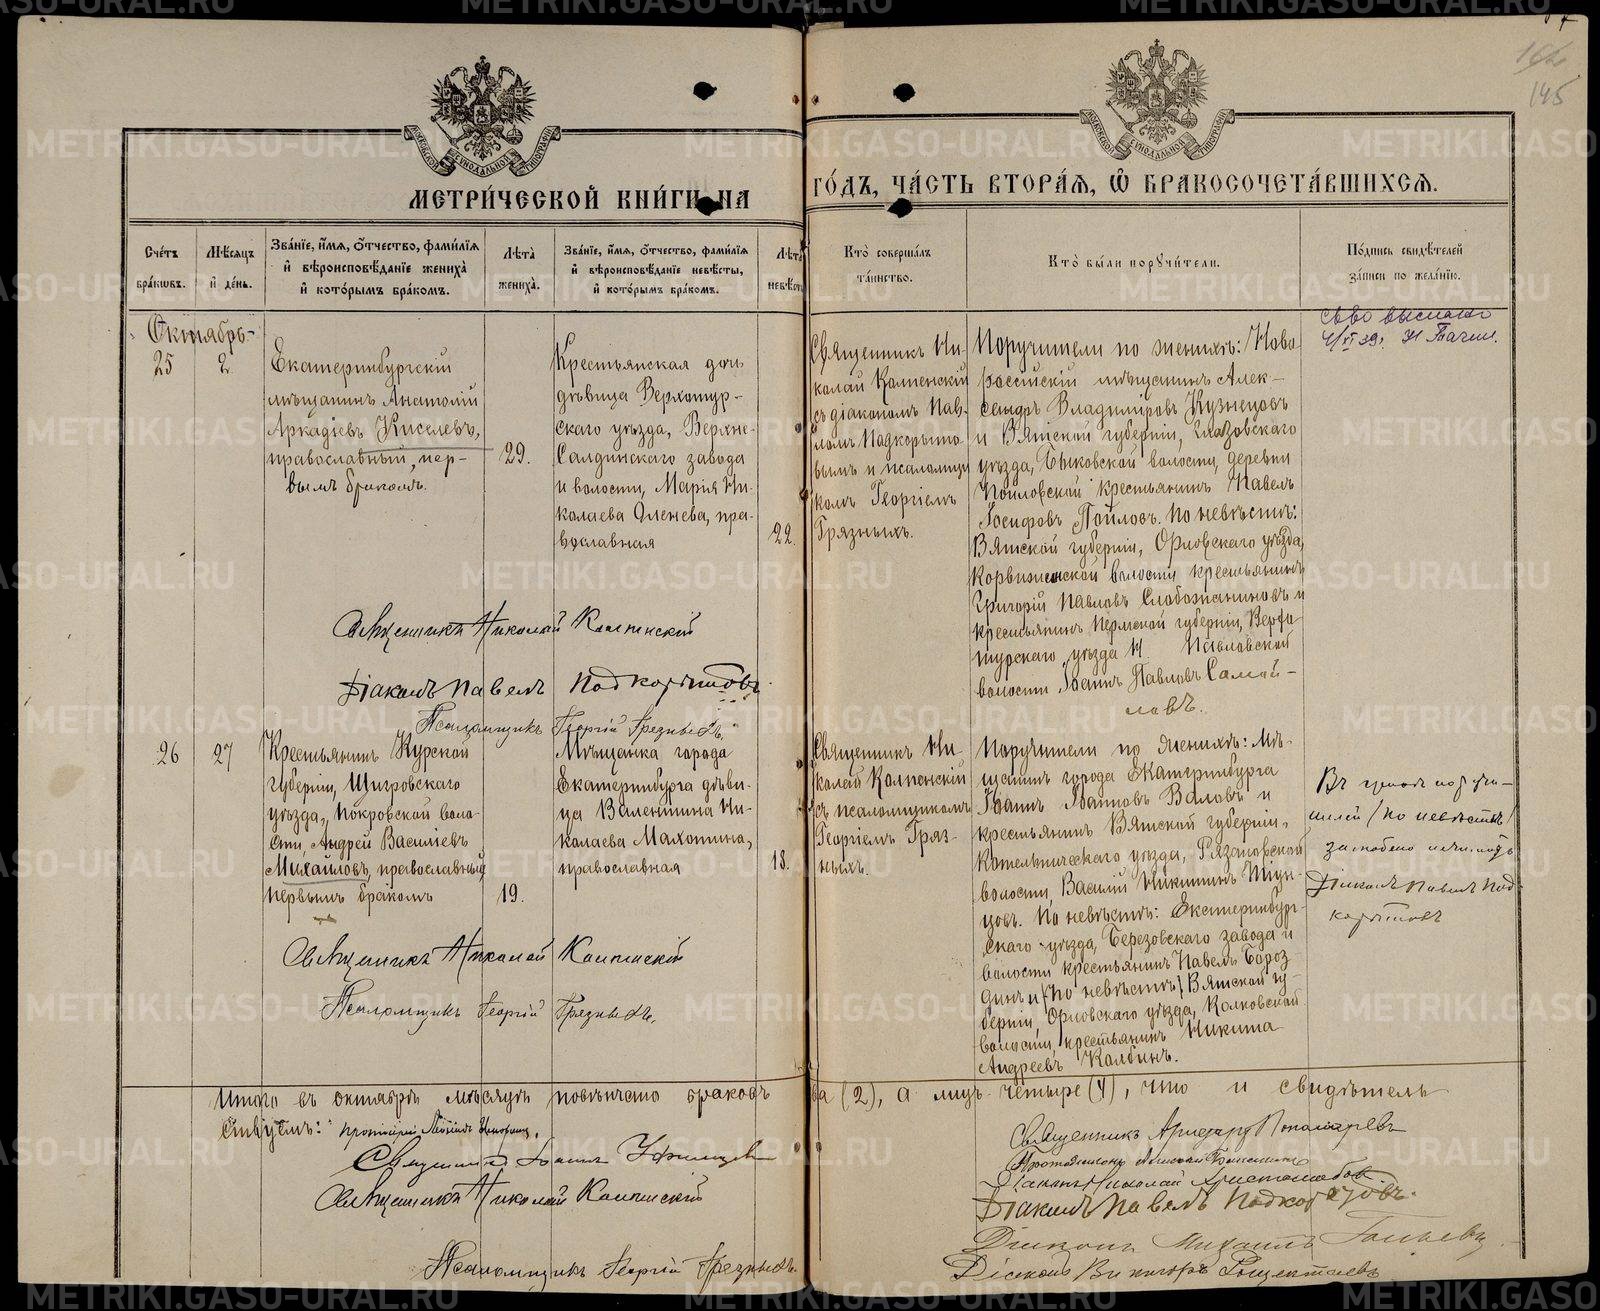 162
145
МЕТРИ́ЧЕСКОЙ КНИ́ГИ НА ГО́ДЪ, ЧА́СТЬ ВТОРА́Я, Ѡ БРАКОСОЧЕТА́ВШИХСЯ.
Сче́тъ бра́кѡвъ.
Мѣ́сяцъ и де́нь.
Зва́нїе, и́мя, о́тчество, фами́лїя и вѣроисповѣ́данїе жениха̀ и кото́рымъ бра́комъ.
Лѣта̀ жениха̀.
Зва́нїе, и́мя, о́тчество, фами́лїя и вѣроисповѣ́данїе невѣ́сты, и кото́рымъ бра́комъ.
Лѣта̀ невѣ́сты
Кто̀ соверша́лъ та́инство.
Кто̀ бы́ли поручи́тели.
По́дпись свидѣ́телей за́писи по жела́нїю.
Октябрь
25
2
Екатеринбургскій
мѣщанинъ Анатолій
Аркадіевъ Киселевъ,
православный, пер-
вымъ бракомъ.
29.
Крестьянская дочь
дѣвица Верхотур-
скаго уѣзда, Верхне-
Салдинскаго завода
и волости, Марія Ни-
колаева Оленева, пра-
вославная
22.
Священникъ Ни-
колай Колпенскій
съ діакономъ Пав-
ломъ Подкорыто-
вымъ и псаломщи
комъ Георгіемъ
Грязныхъ.
Поручители по женихѣ: Ново
россійскій мѣщанинъ Алек-
сандръ Владиміровъ Кузнецовъ
и Вятской губерніи, Глазовскаго
уѣзда, Быковской волости, деревни
крестьянинъ Павелъ
Іосифовъ. По невѣстѣ:
Вятской губерніи, Орловскаго уѣзда,
волости крестьянинъ
Григорій Павловъ Слободчиковъ и
крестьянинъ Пермской губерніи, Верхо
турскаго уѣзда Н. Павловской
волости Іоаннъ Павловъ Самой-
ловъ.
Священникъ Николай Колпенскій
Діаконъ Павелъ Подкорытовъ.
Псаломщикъ Георгій Грязныхъ.
26
27
Крестьянинъ Курской
губерніи, Щигровскаго
уѣзда, Покровской воло-
сти, Андрей Василіевъ
Михайловъ, православный,
первымъ бракомъ
19.
Мѣщанка города
Екатеринбурга дѣви-
ца Валентина Ни-
колаева Махотина,
православная
18.
Священникъ Ни-
колай Колпенскій
съ псаломщикомъ
Георгіемъ Гряз-
ныхъ.
Поручители по женихѣ: Мѣ-
щанинъ города Екатеринбурга
Іоаннъ Іоанновъ Валовъ и
крестьянинъ Вятской губерніи,
Котельническаго уѣзда, Рязановской
волости, Василій Никитинъ
По невѣстѣ: Екатеринбург-
скаго уѣзда, Березовскаго завода и
волости крестьянинъ Павелъ Бороз
динъ и (по невѣстѣ) Вятской гу-
берніи, Орловскаго уѣзда, Колковской
волости, крестьянинъ Никита
Андреевъ Колбинъ.
(по невѣстѣ)
Діаконъ Павелъ Под
корытовъ
Священникъ Николай Колпенскій
Псаломщикъ Георгій Грязныхъ.
Итого въ октябрѣ мѣсяцѣ повѣнчано браковъ два (2), а лицъ четыре (4), что и свидѣтель
ствуемъ:
Священникъ Іоаннъ
Священникъ Николай Колпенскій
Псаломщикъ Георгій Грязныхъ.
Священникъ Пономаревъ
Діаконъ Николай
Діаконъ Павелъ Подкорытовъ.
Діаконъ Михаилъ
Діаконъ Викторъ
METRIKI.GASO-URAL.RU